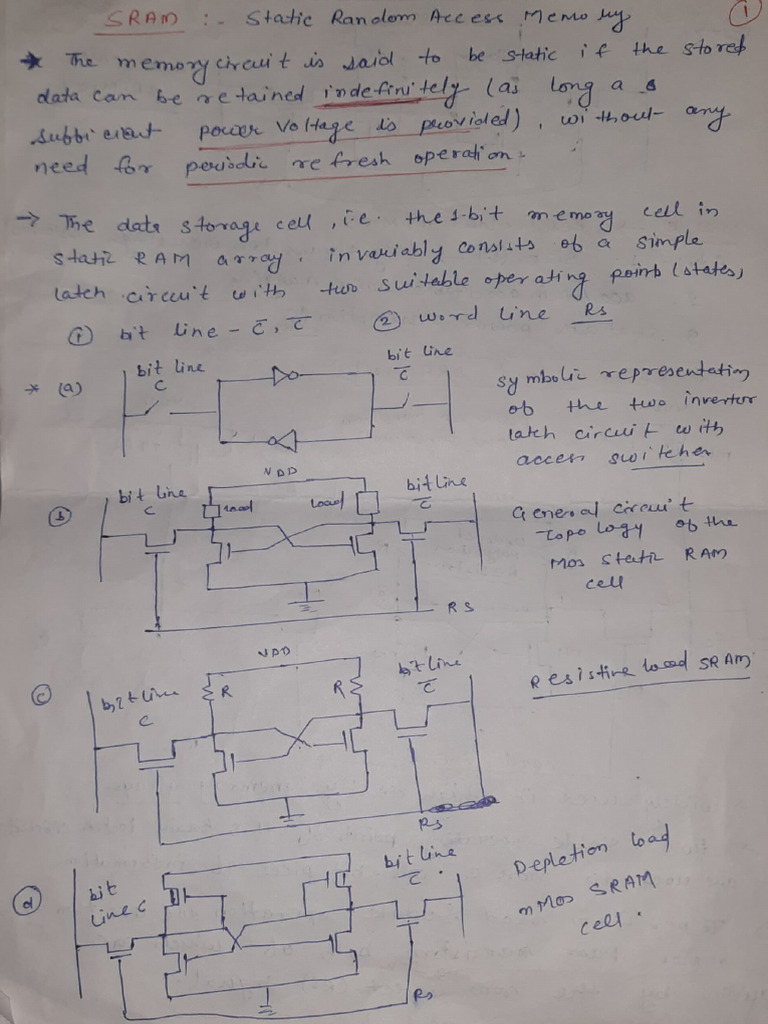 ①
SRAM :- Static Random Access Memory
* The memory circuit is said to be static if the stored
data can be retained indefinitely (as long as
sufficient power voltage is provided), without any
need for periodic refresh operation.
→ The data storage cell, i.e. the 1-bit memory cell in
static RAM array, invariably consists of a simple
latch circuit with two suitable operating points (states)
① bit line - C, C̅ ② word line RS
* (a) bit line C
bit line C̅
symbolic representation
of the two invertor
latch circuit with
access switches
VDD
ⓑ bit line C
load
load
bit line C̅
General circuit
topology of the
Mos static RAM
cell
RS
VDD
ⓒ bit line C
R
R
bit line C̅
Resistive load SRAM
RS
ⓓ bit line C
bit line C̅
Depletion load
nMos SRAM
cell.
RS